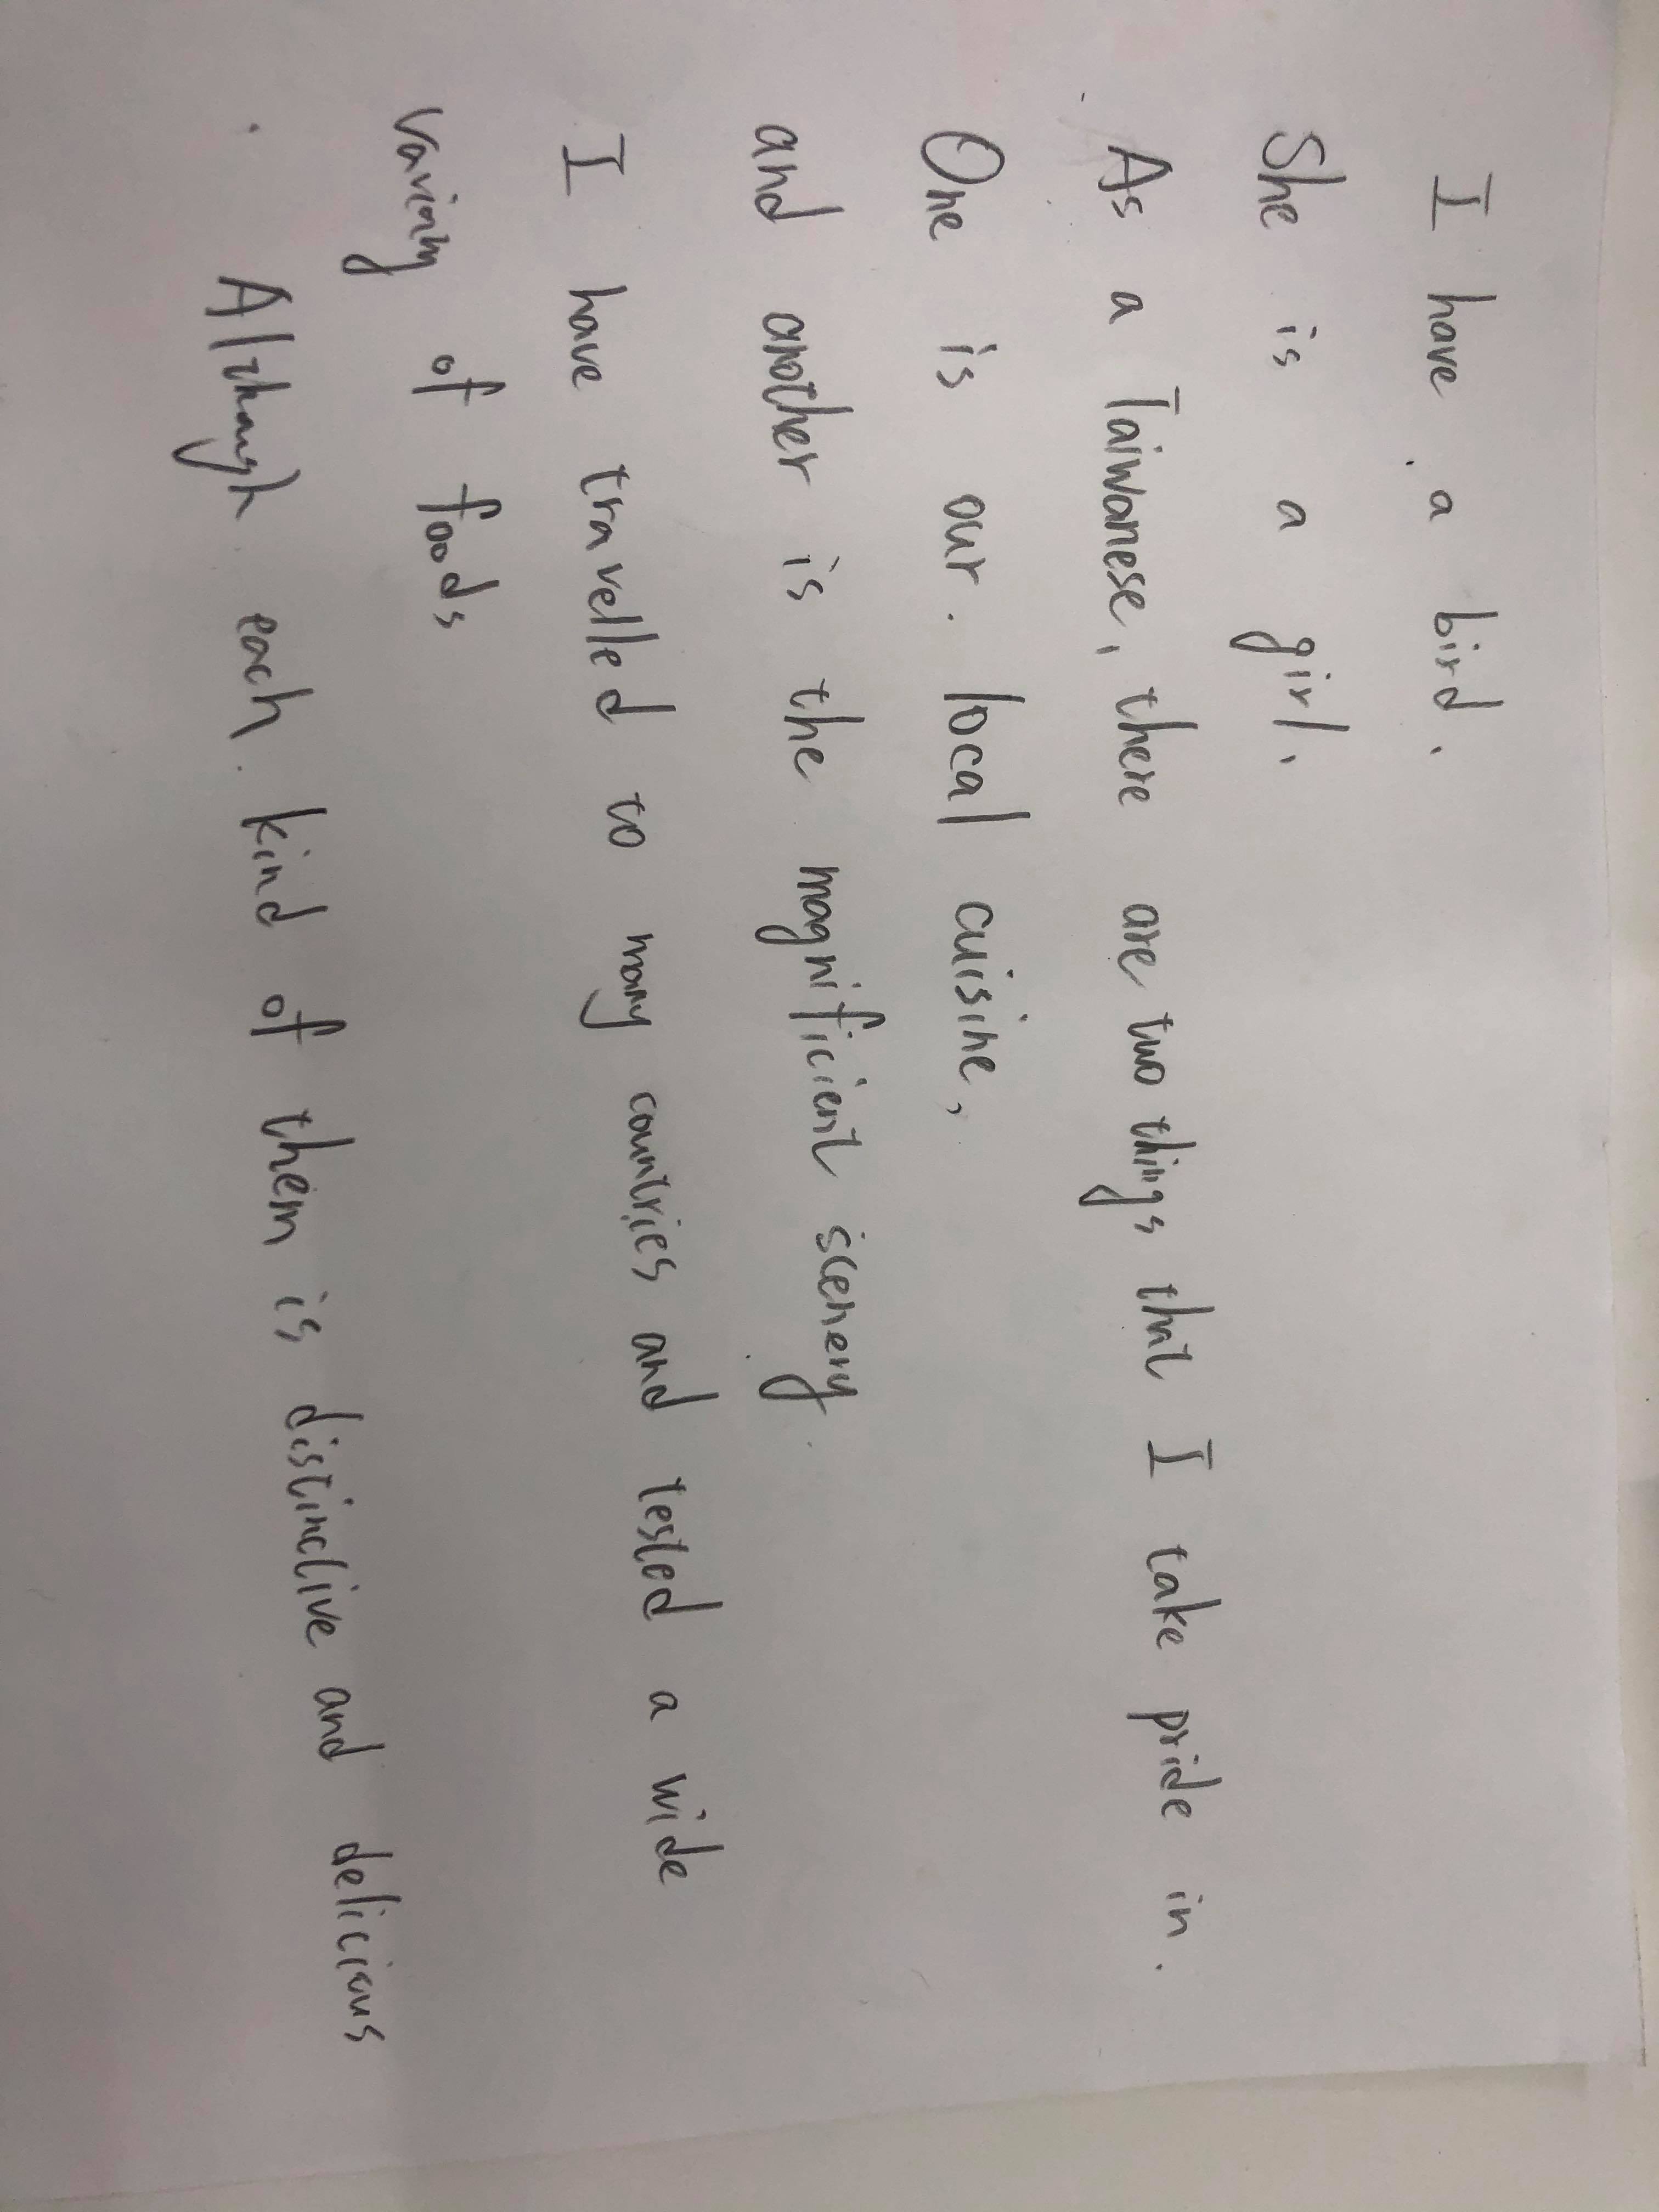 I have a bird.
She is a girl.
As a Taiwanese, there are two things that I take pride in.
One is our local cuisine,
and another is the magnificient scenery
I have travelled to many countries and tested a wide
of foods
Although each kind of them is distinctive and delicious